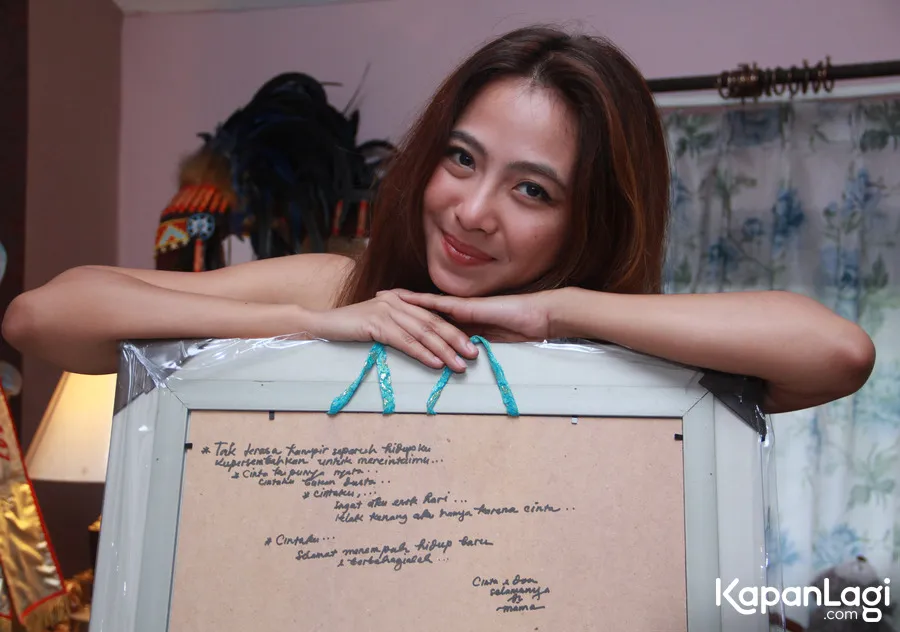 * Tak terasa hampir separuh hidupku
Kupersembahkan untuk mencintaimu...
* Cinta tu punya nyata..
Cintaku bukan dusta..
* Cintaku,...
Ingat aku esok hari...
Kelak kenang aku hanya karena cinta...
* Cintaku...
Selamat menempuh hidup baru
& berbahagialah...
Cinta & Doa
selamanya
mama
KapanLagi
.com